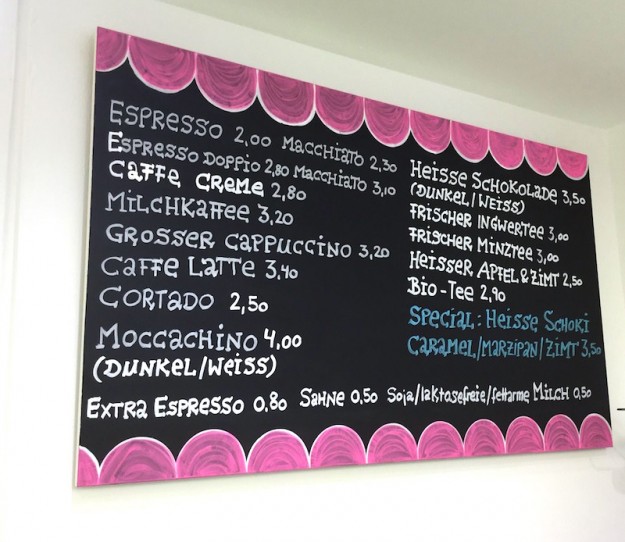 Espresso 2,00 Macchiato 2,30
Espresso Doppio 2,80 Macchiato 3,10
Caffe Creme 2,80
Milchkaffee 3,20
Grosser Cappuccino 3,20
Caffe Latte 3,40
Cortado 2,50
Moccachino 4,00
(Dunkel/Weiss)
Heisse Schokolade 3,50
(Dunkel/Weiss)
Frischer Ingwertee 3,00
Frischer Minztee 3,00
Heisser Apfel & Zimt 2,50
Bio-Tee 2,90
Special: Heisse Schoki
Caramel/Marzipan/Zimt 3,50
Extra Espresso 0,80 Sahne 0,50 Soja/laktosefreie/fettarme Milch 0,50